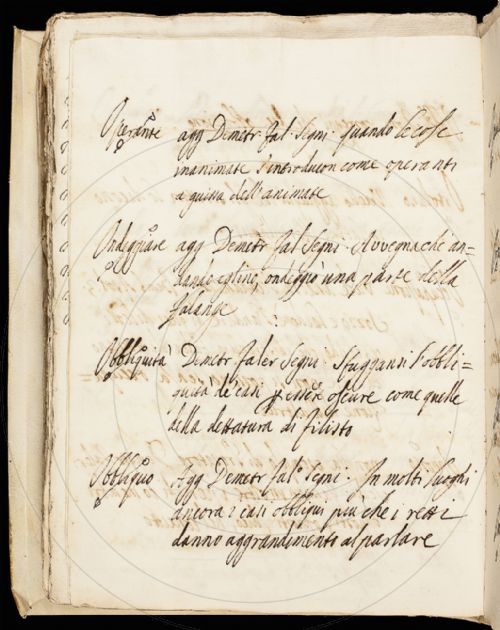 Operante agg Demetr fal· Segni· quando le cose
inanimate s'introducon come operanti
a guisa dell'animate
Ondeggiare agg Demetr fal Segni· Avvegnache an=
dando eglino, ondeggiò una parte della
falange
Obbliquità Demetr faler Segni· Sfuggansi l'obbli=
quità de casi p esser oscure come quelle
della dettatura di filisto
Obbliquo Agg Demetr fal. Segni· In molti luoghi
ancora i casi obbliqui più che i retti
danno aggrandimento al parlare